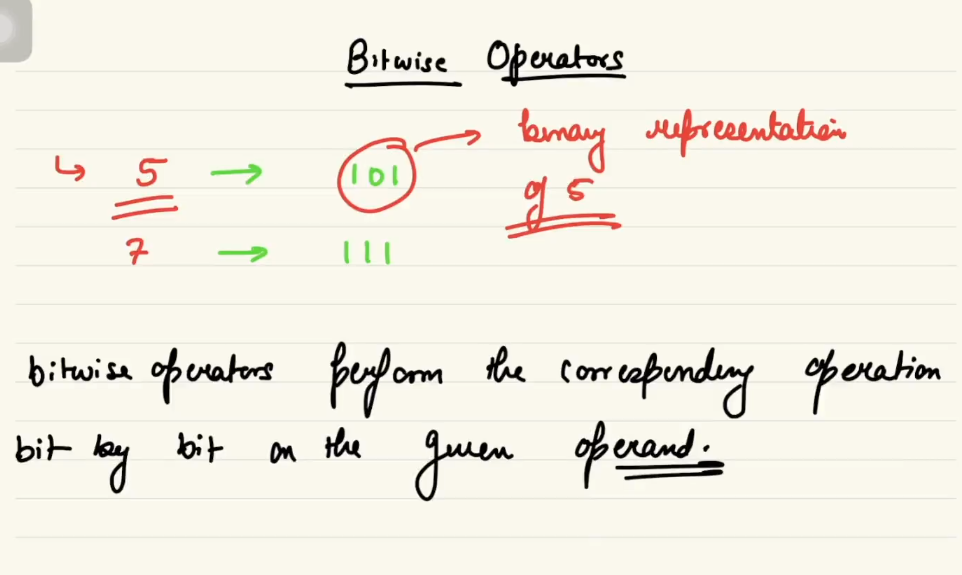 Bitwise Operators
↳ 5 → 101 → binary representation
of 5
7 → 111
bitwise operators perform the corresponding operation
bit by bit on the given operand.